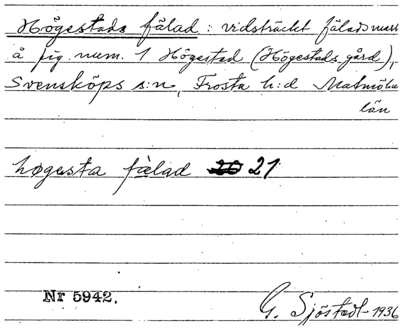 Högestads fälad: vidsträckt fäladsmark
å fig. num. 1 Högestad (Högestads gård),
Svensköps s:n, Frosta h:d Malmöhus
län
høgesta fàlad 20 21
Nr 5942.
G. Sjöstedt 1936